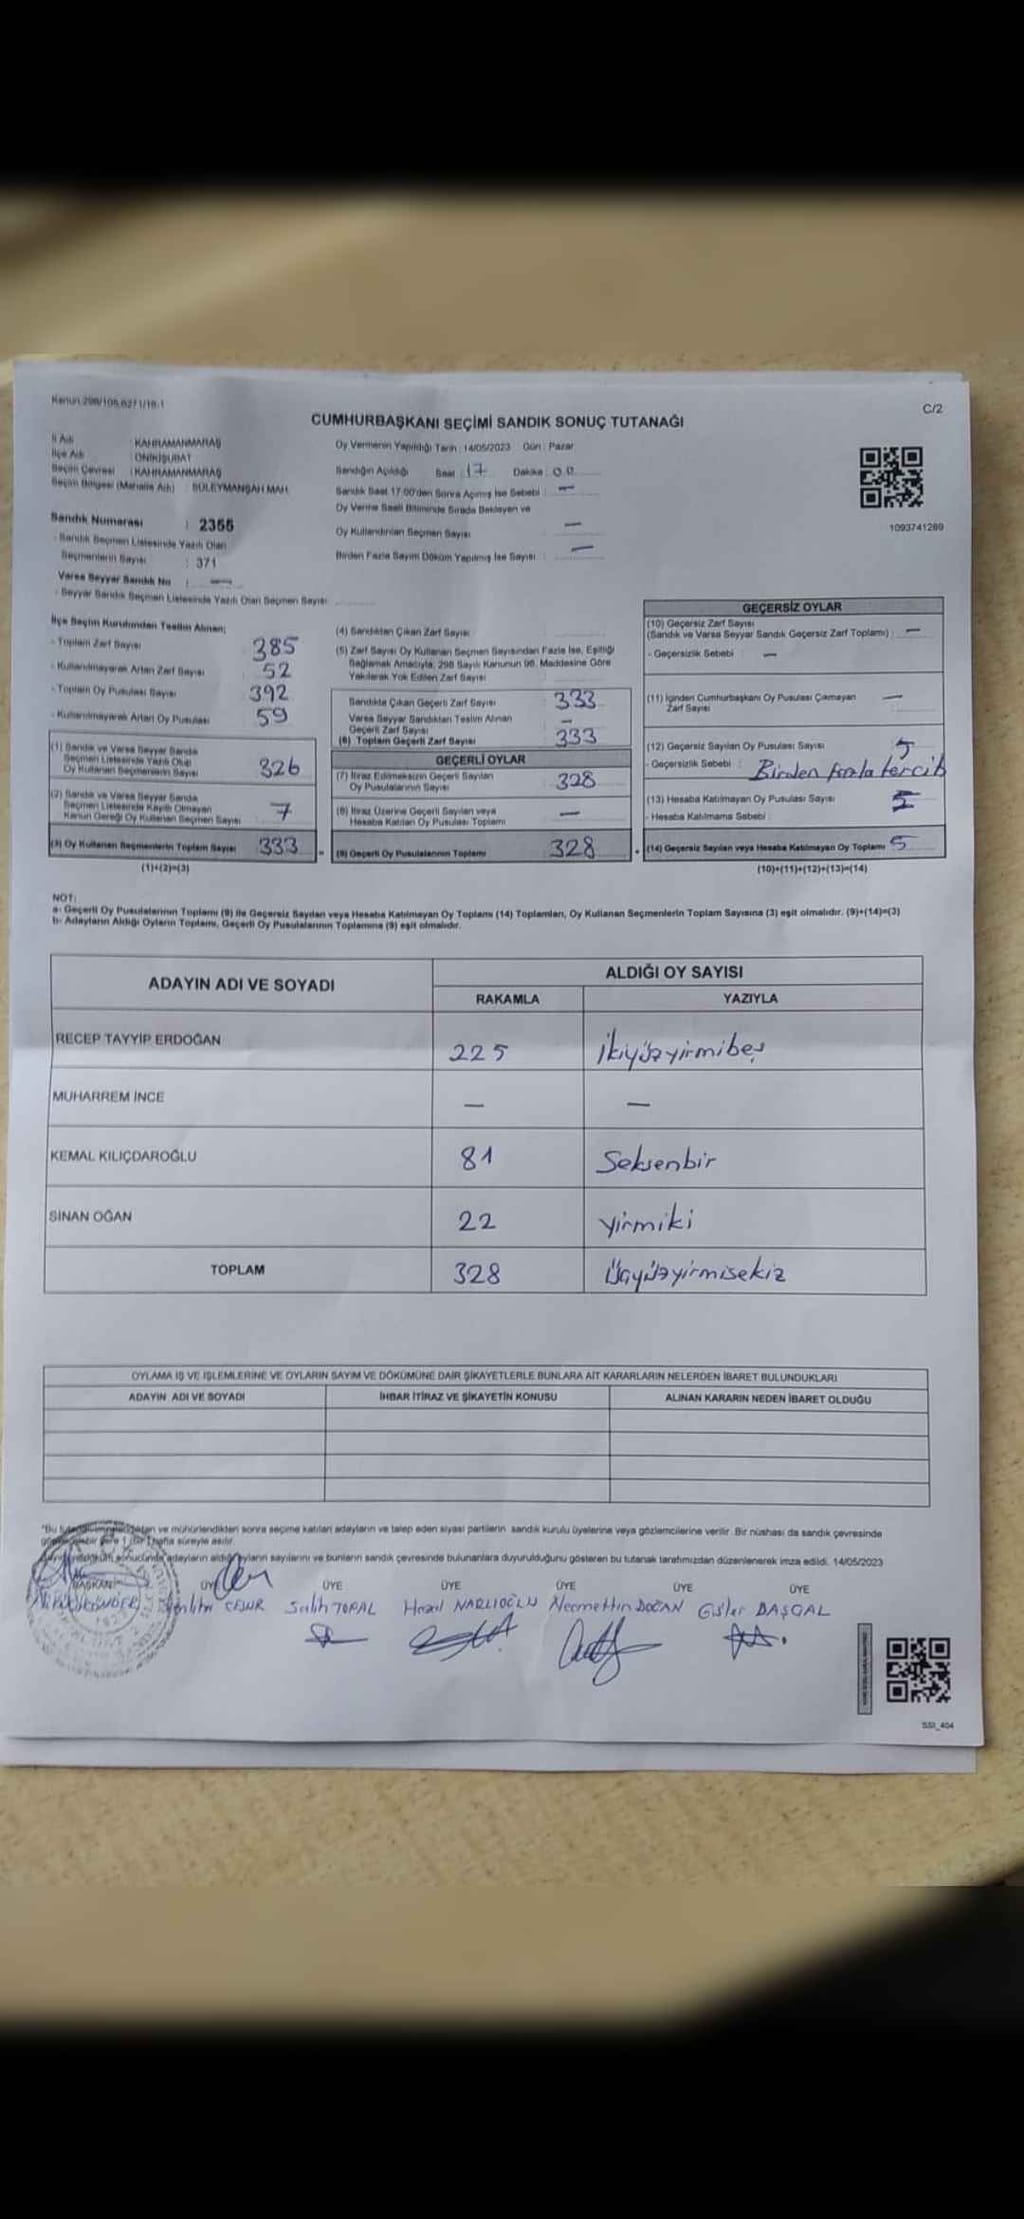 Kanun 298/105,6271/18-1
C/2
CUMHURBAŞKANI SEÇİMİ SANDIK SONUÇ TUTANAĞI
İl Adı : KAHRAMANMARAŞ
İlçe Adı : ONİKİŞUBAT
Seçim Çevresi : KAHRAMANMARAŞ
Seçim Bölgesi (Mahalle Adı) : SÜLEYMANŞAH MAH.
Sandık Numarası : 2355
- Sandık Seçmen Listesinde Yazılı Olan
Seçmenlerin Sayısı : 371
Varsa Seyyar Sandık No : —
- Seyyar Sandık Seçmen Listesinde Yazılı Olan Seçmen Sayısı
Oy Vermenin Yapıldığı Tarih : 14/05/2023 Gün : Pazar
Sandığın Açıldığı Saat : 17 Dakika : 00
Sandık Saat 17:00'den Sonra Açılmış İse Sebebi : —
Oy Verme Saati Bitiminde Sırada Bekleyen ve
Oy Kullandırılan Seçmen Sayısı —
Birden Fazla Sayım Döküm Yapılmış İse Sayısı : —
1093741289
İlçe Seçim Kurulundan Teslim Alınan;
- Toplam Zarf Sayısı 385
- Kullanılmayarak Artan Zarf Sayısı 52
- Toplam Oy Pusulası Sayısı 392
- Kullanılmayarak Artan Oy Pusulası 59
(1) Sandık ve Varsa Seyyar Sandık
Seçmen Listesinde Yazılı Olup
Oy Kullanan Seçmenlerin Sayısı 326
(2) Sandık ve Varsa Seyyar Sandık
Seçmen Listesinde Kayıtlı Olmayan
Kanun Gereği Oy Kullanan Seçmen Sayısı 7
(3) Oy Kullanan Seçmenlerin Toplam Sayısı 333
(1)+(2)=(3)
(4) Sandıktan Çıkan Zarf Sayısı
(5) Zarf Sayısı Oy Kullanan Seçmen Sayısından Fazla İse, Eşitliği
Sağlamak Amacıyla, 298 Sayılı Kanunun 98. Maddesine Göre
Yakılarak Yok Edilen Zarf Sayısı
Sandıkta Çıkan Geçerli Zarf Sayısı 333
Varsa Seyyar Sandıktan Teslim Alınan
Geçerli Zarf Sayısı —
(6) Toplam Geçerli Zarf Sayısı 333
GEÇERLİ OYLAR
(7) İtiraz Edilmeksizin Geçerli Sayılan
Oy Pusulalarının Sayısı 328
(8) İtiraz Üzerine Geçerli Sayılan veya
Hesaba Katılan Oy Pusulası Toplamı —
= (9) Geçerli Oy Pusulalarının Toplamı 328
GEÇERSİZ OYLAR
(10) Geçersiz Zarf Sayısı
(Sandık ve Varsa Seyyar Sandık Geçersiz Zarf Toplamı) : —
- Geçersizlik Sebebi : —
(11) İçinden Cumhurbaşkanı Oy Pusulası Çıkmayan
Zarf Sayısı —
(12) Geçersiz Sayılan Oy Pusulası Sayısı 5
- Geçersizlik Sebebi : Birden fazla tercih
(13) Hesaba Katılmayan Oy Pusulası Sayısı
- Hesaba Katılmama Sebebi :
+ (14) Geçersiz Sayılan veya Hesaba Katılmayan Oy Toplamı 5
(10)+(11)+(12)+(13)=(14)
NOT:
a- Geçerli Oy Pusulalarının Toplamı (9) ile Geçersiz Sayılan veya Hesaba Katılmayan Oy Toplamı (14) Toplamları, Oy Kullanan Seçmenlerin Toplam Sayısına (3) eşit olmalıdır. (9)+(14)=(3)
b- Adayların Aldığı Oyların Toplamı, Geçerli Oy Pusulalarının Toplamına (9) eşit olmalıdır.
ADAYIN ADI VE SOYADI
ALDIĞI OY SAYISI
RAKAMLA YAZIYLA
RECEP TAYYİP ERDOĞAN 225 İkiyüzyirmibeş
MUHARREM İNCE — —
KEMAL KILIÇDAROĞLU 81 Seksenbir
SİNAN OĞAN 22 yirmiki
TOPLAM 328 Üçyüzyirmisekiz
OYLAMA İŞ VE İŞLEMLERİNE VE OYLARIN SAYIM VE DÖKÜMÜNE DAİR ŞİKAYETLERLE BUNLARA AİT KARARLARIN NELERDEN İBARET BULUNDUKLARI
ADAYIN ADI VE SOYADI İHBAR İTİRAZ VE ŞİKAYETİN KONUSU ALINAN KARARIN NEDEN İBARET OLDUĞU
ve mühürlendikten sonra seçime katılan adayların ve talep eden siyasi partilerin sandık kurulu üyelerine veya gözlemcilerine verilir. Bir nüshası da sandık çevresinde
yere 1 (bir) hafta süreyle asılır.
sonucunda adayların aldığı oyların sayılarını ve bunların sandık çevresinde bulunanlara duyurulduğunu gösteren bu tutanak tarafımızdan düzenlenerek imza edildi. 14/05/2023
BAŞKAN ÜYE ÜYE ÜYE ÜYE ÜYE ÜYE
Salih TOPAL Hazal NARLIOĞLU Necmettin DOĞAN Gisler DAŞÇAL
SSI_404